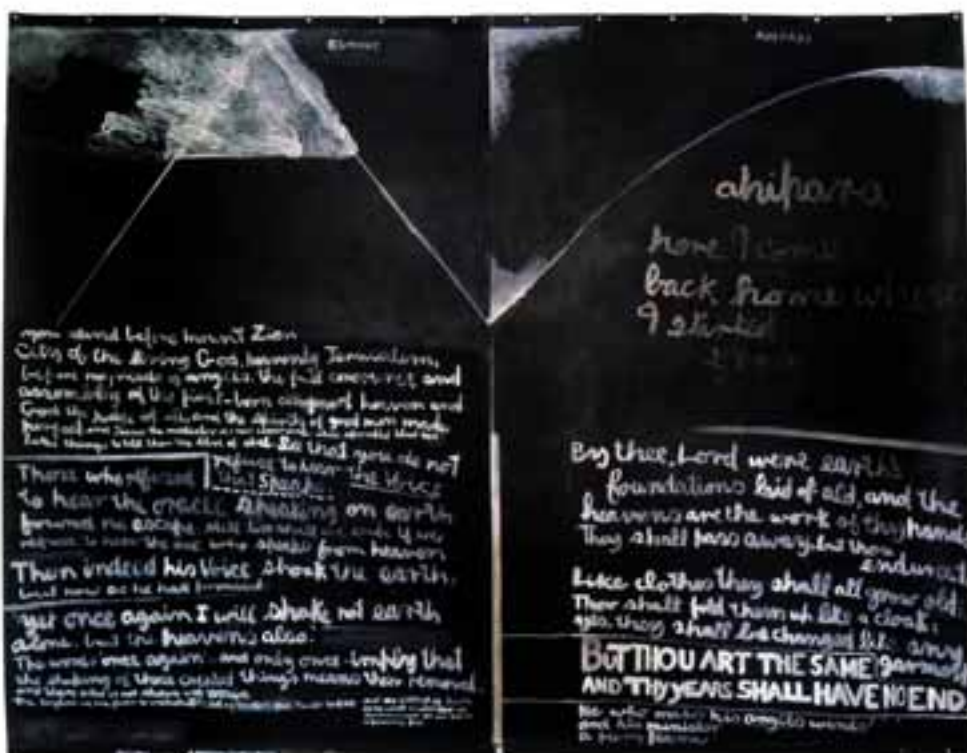 you stand before mount Zion
City of the living God, heavenly Jerusalem,
before myriads of angels, the full concourse and
assembly of the first-born citizens of heaven and
God the judge of all, and the spirits of good men made
perfect and Jesus the mediator
See that you do not
refuse to hear the voice
that speaks.
Those who refused
to hear the oracle speaking on earth
found no escape, still less shall we escape if we
refuse to hear the one who speaks from heaven
Then indeed his voice shook the earth,
but now he has promised
yet once again I will shake not earth
alone but the heavens also.
The words once again and only once imply that
the shaking of these created things means their removal
ahipara
here I come
back home where
I started
from
By thee, Lord were earth's
foundations laid of old, and the
heavens are the work of thy hands
They shall pass away but thou
endurest
Like clothes they shall all grow old:
Thou shalt fold them up like a cloak;
yes, they shall be changed like any
garment
BUT THOU ART THE SAME
AND THY YEARS SHALL HAVE NO END
He who makes his angels winds
and his ministers
a fiery flame